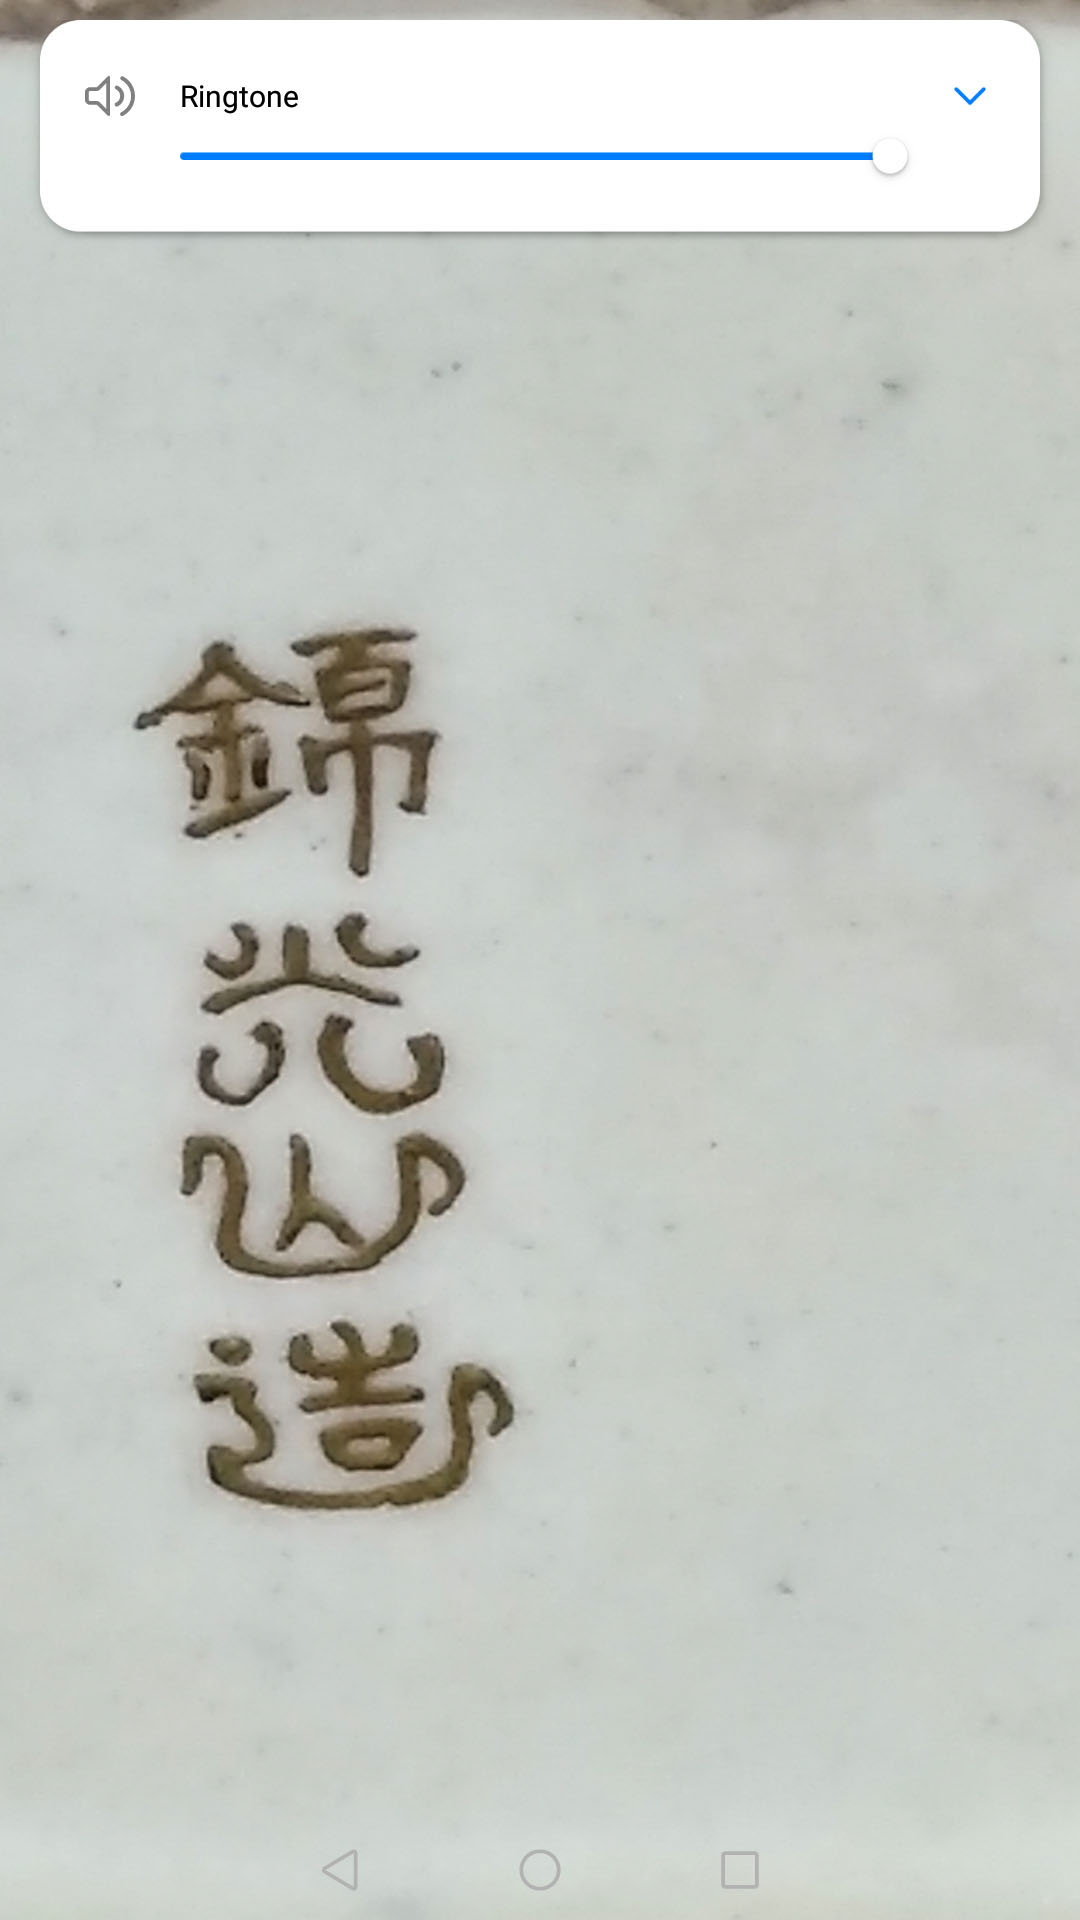 Ringtone
錦光山造